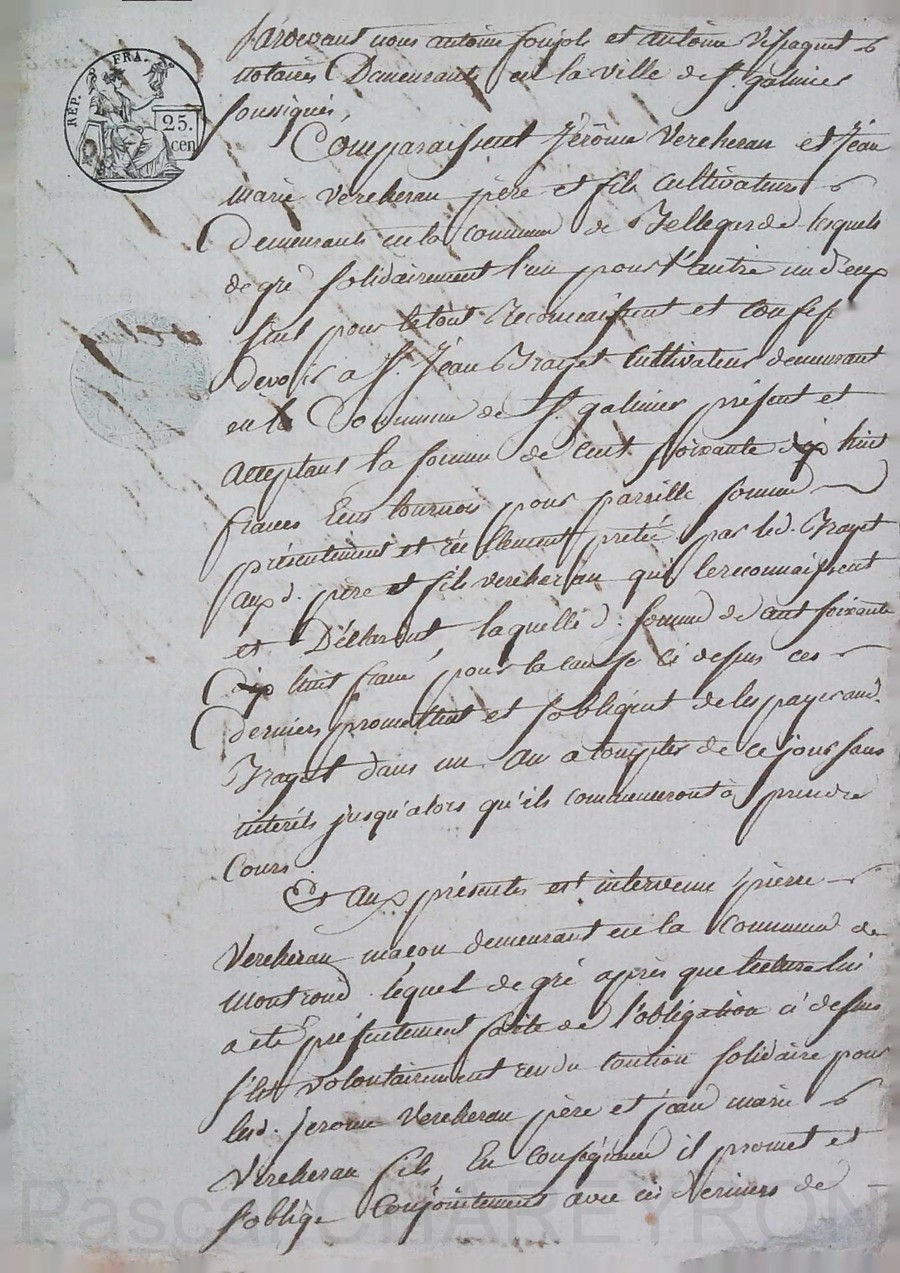 REP. FRA.
25. cen
Pardevant nous antoine et antoine
notaires Demeurants en la ville de St. galmier
soussignés,
Comparaissent Jérôme Vercheran et Jean
marie Vercheran père et fils cultivateurs
Demeurants en la commune de Bellegarde lesquels
de gré solidairement l'un pour l'autre un d'eux
seul pour le tout Reconnaissent et confess
Devoir a Sr. Jean Brayet Cultivateur demeurant
en la Commune de St. galmier présent et
acceptant la somme de cent soixante dix huit
francs Ecus tournois pour pareille somme
présentement et réellement pretée par led. Brayet
aux d. père et fils vercheran qui le reconnaissent
et Déclarent, laquelle d. somme de cent soixante
dix huit francs, pour la cause ci dessus ces
derniers promettent et s'obligent de les payer aud.
Brayet dans un an a compter de ce jour sans
intérêts jusqu'alors qu'ils commenceront à prendre
Cours.
Et aux présentes est intervenu pierre
Vercheran maçon demeurant en la Commune de
montrond lequel de gré après que lecture lui
a été présentement faite de l'obligation ci dessus
s'est volontairement rendu caution solidaire pour
lesd. Jerome Vercheran père et jean marie
Vercheran fils, En conséquence il promet et
s'oblige Conjointement avec ces Derniers de
Pascal CHAREYRON